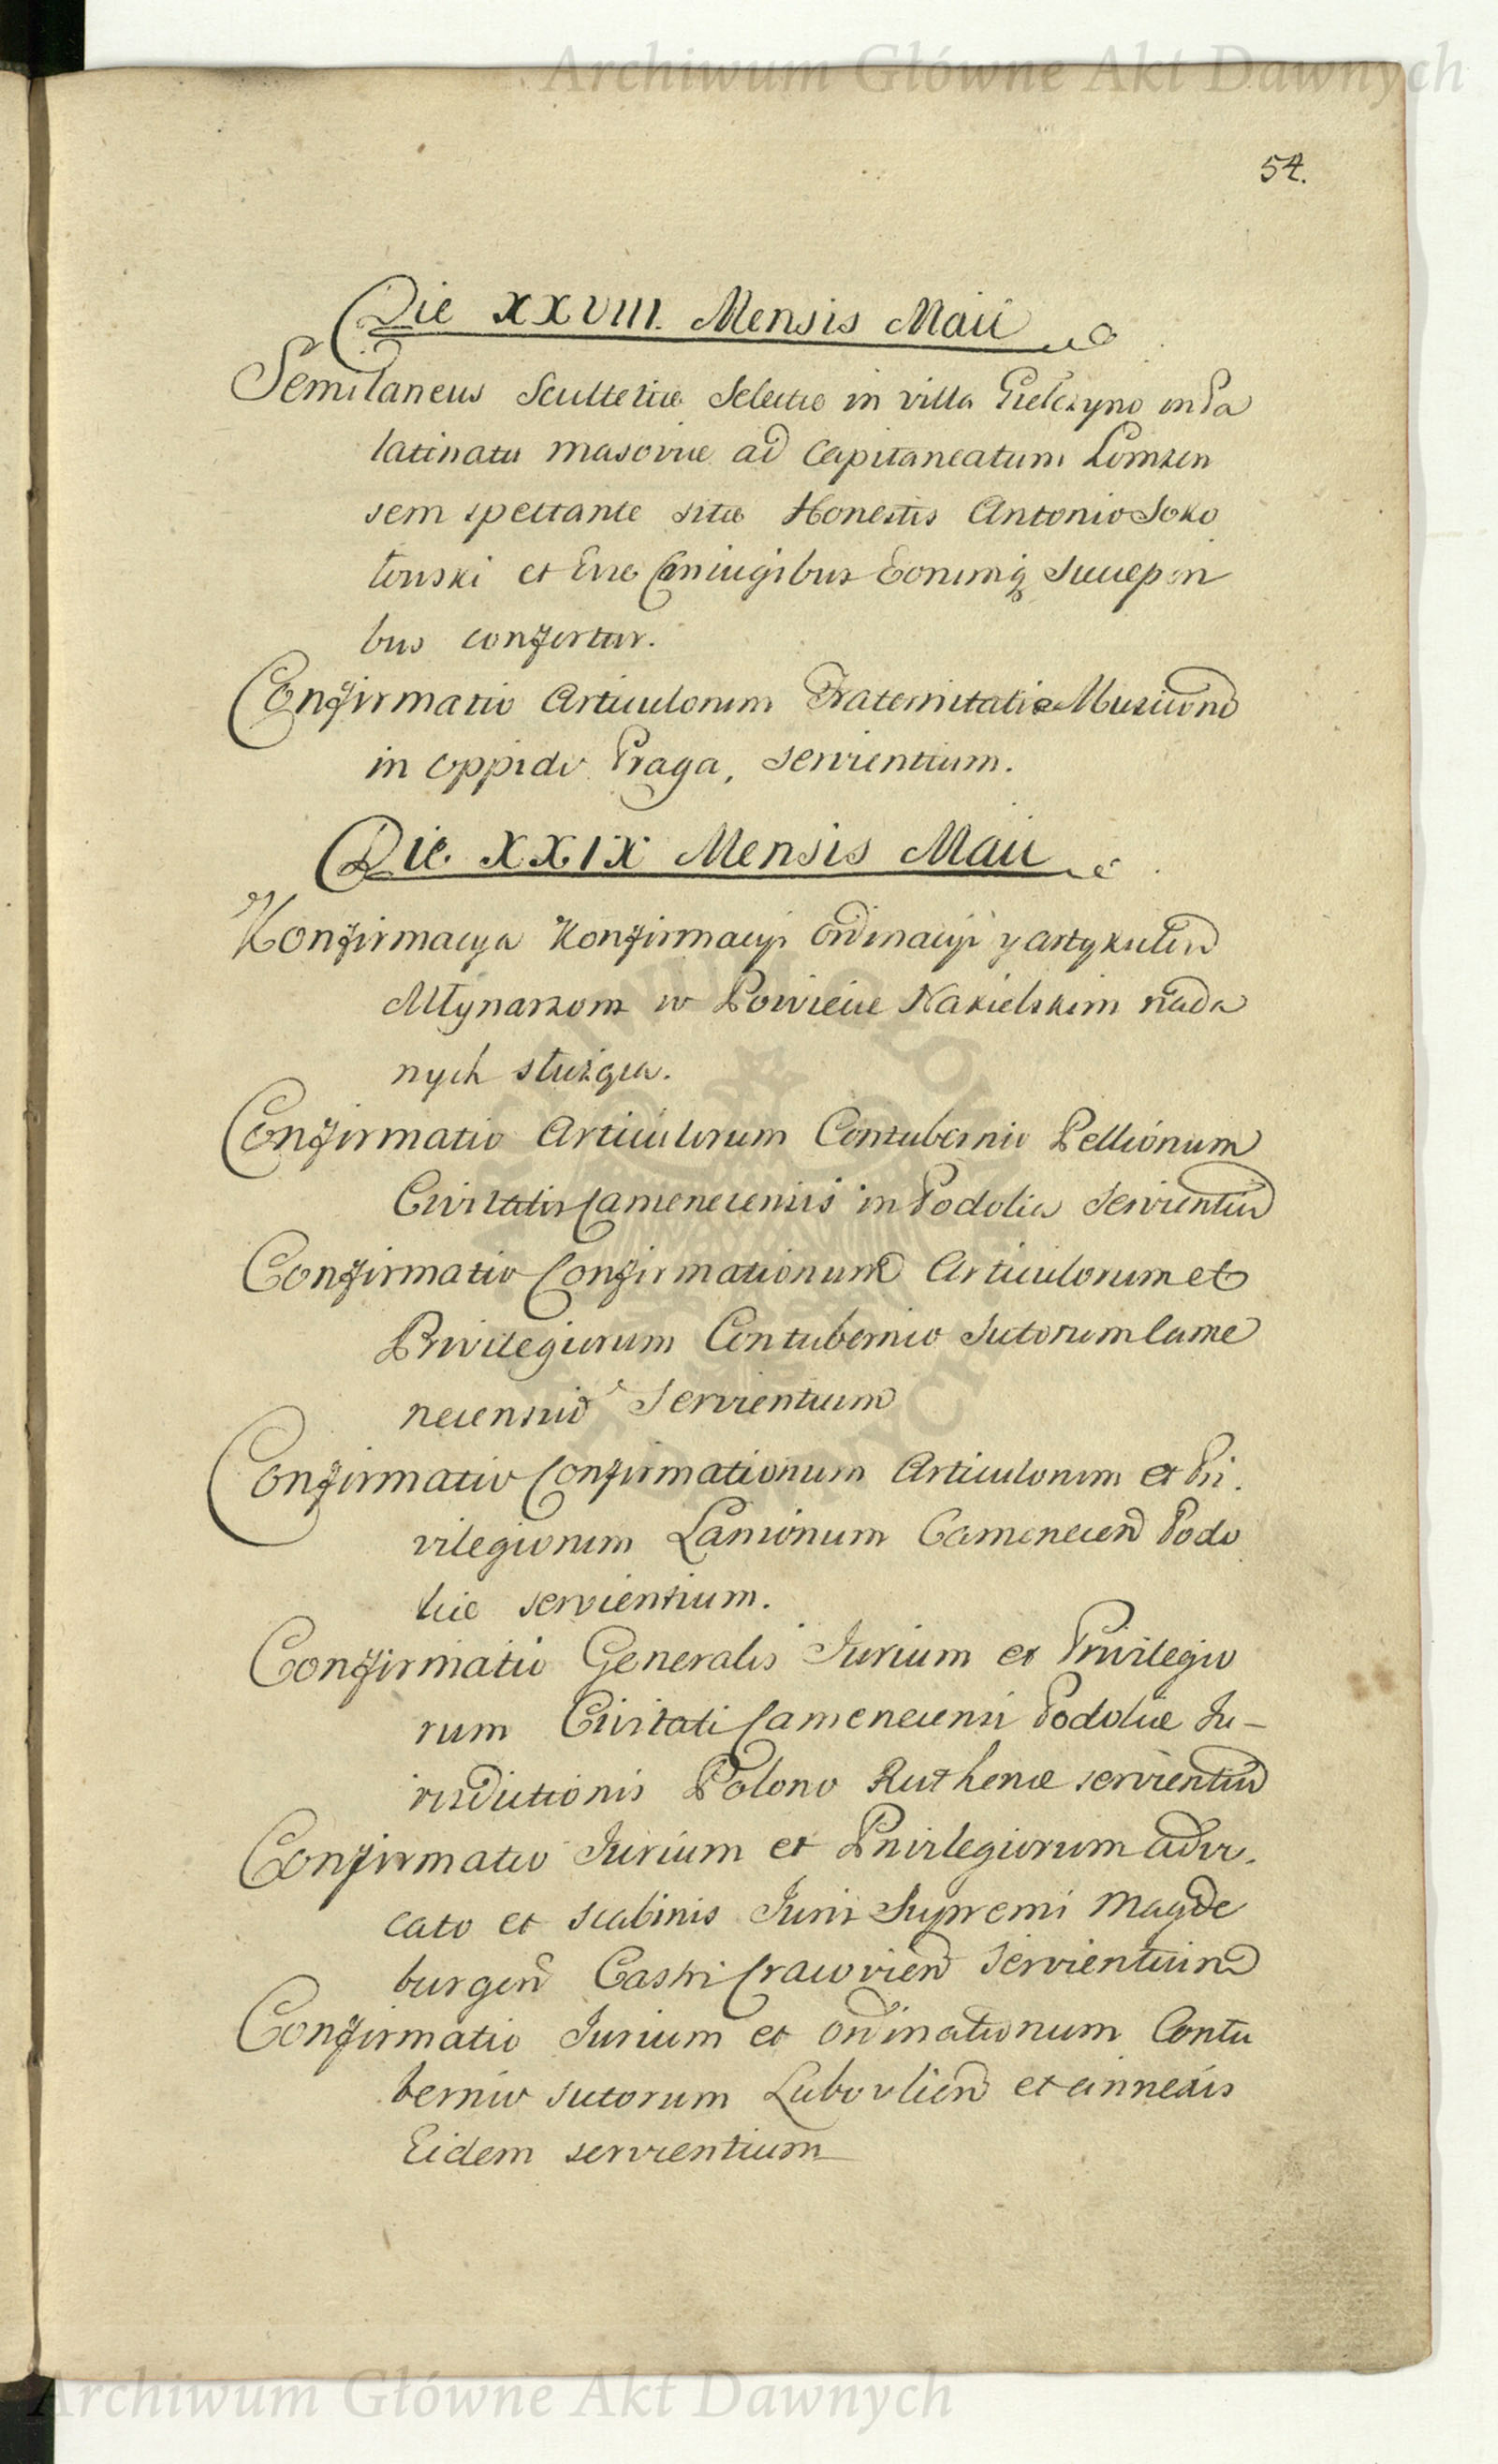 Archiwum Główne Akt Dawnych
54.
Die XXVIII. Mensis Maii
Semilaneus Scultetiæ Selectæ in villa Gielczyno in Pa
latinatu Masoviæ ad Capitaneatum Lomzen
sem spectante sitæ Honestis Antonio Soko
łouski et Coniugibus Eorumq
bus confertur.
Confirmatio Articulorum Fraternitatis Musicorum
in Oppido Praga, servientium.
Die XXIX Mensis Maii
Konfirmacya Konfirmacyi Ordinacyi y artykułow
Młynarzom w Powiecie Nakielskim nada
nych służąca.
Confirmatio Articulorum Contubernio Pellionum
Civitatis Camenecensis in Podolia Servientium
Confirmatio Confirmationum Articulorum et
Privilegiorum Contubernio Sutorum Came
necensium Servientium
Confirmatio Confirmationum Articulorum et Pri.
vilegiorum Lanionum Camenecen Podo
liæ servientium.
Confirmatio Generalis Iurium et Privilegio
rum Civitati Camenecensi Podoliæ Iu-
risdictionis Polono Ruthenæ servientium
Confirmatio Iurium et Privilegiorum Advo.
cato et Scabinis Iuris Supremi Magde
burgen Castri Cracovien Servientium
Confirmatio Iurium et Ordinationum Contu
bernio Sutorum Lubovlien et annexis
Eidem servientium
Archiwum Główne Akt Dawnych